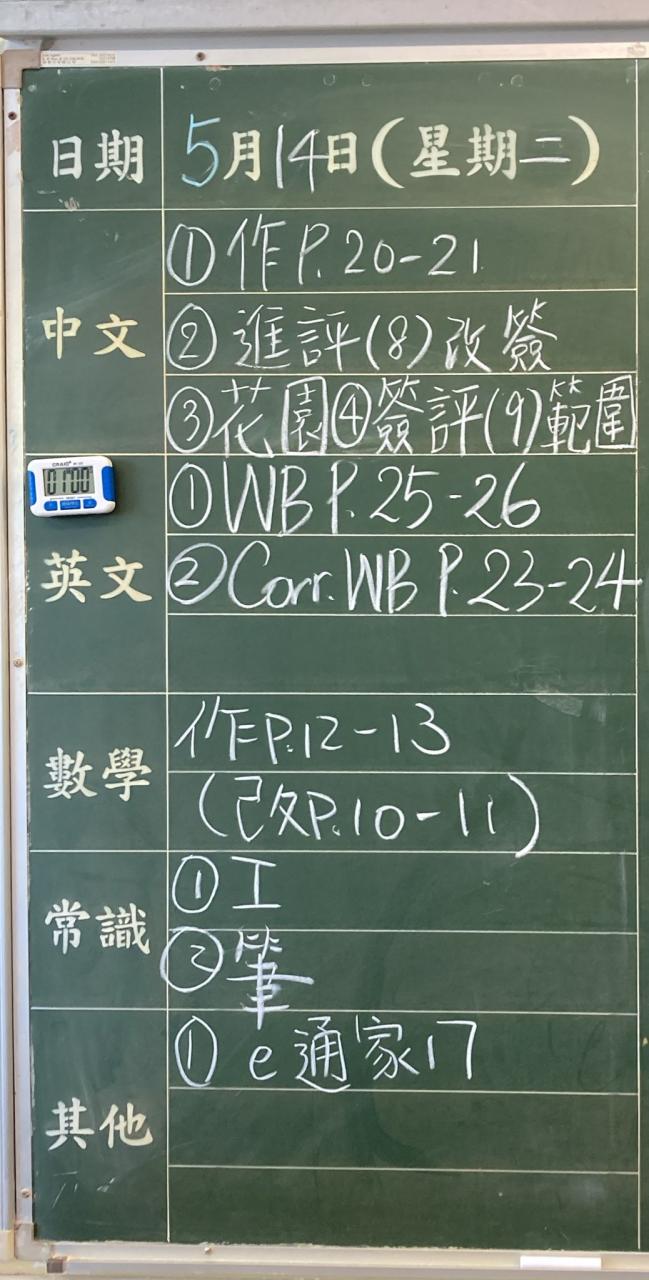 日期 5月14日(星期二)
中文 ①作P.20-21
②進評(8)改簽
③花園④簽評(9)範圍
01:00
英文 ①WB P.25-26
②Corr.WB P.23-24
數學 作P.12-13
(改P.10-11)
常識 ①工
②筆
其他 ①e通家17